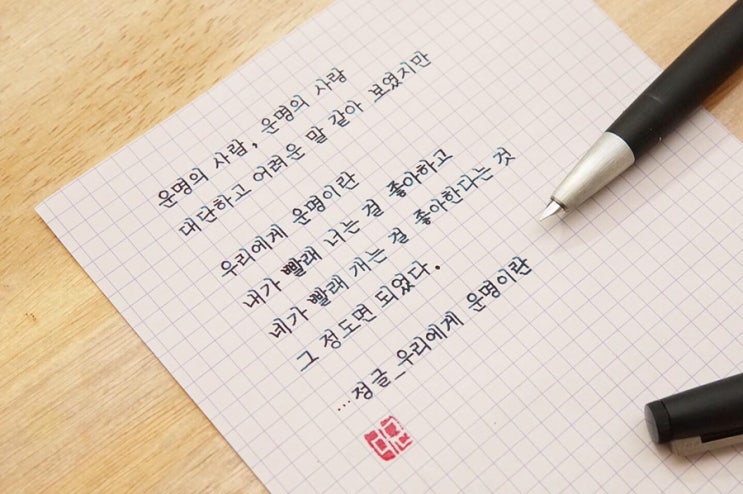 운명의 사람, 운명의 사랑
대단하고 어려운 말 같아 보였지만
우리에게 운명이란
내가 빨래 너는 걸 좋아하고
네가 빨래 개는 걸 좋아한다는 것
그 정도면 되었다.
...정글_우리에게 운명이란